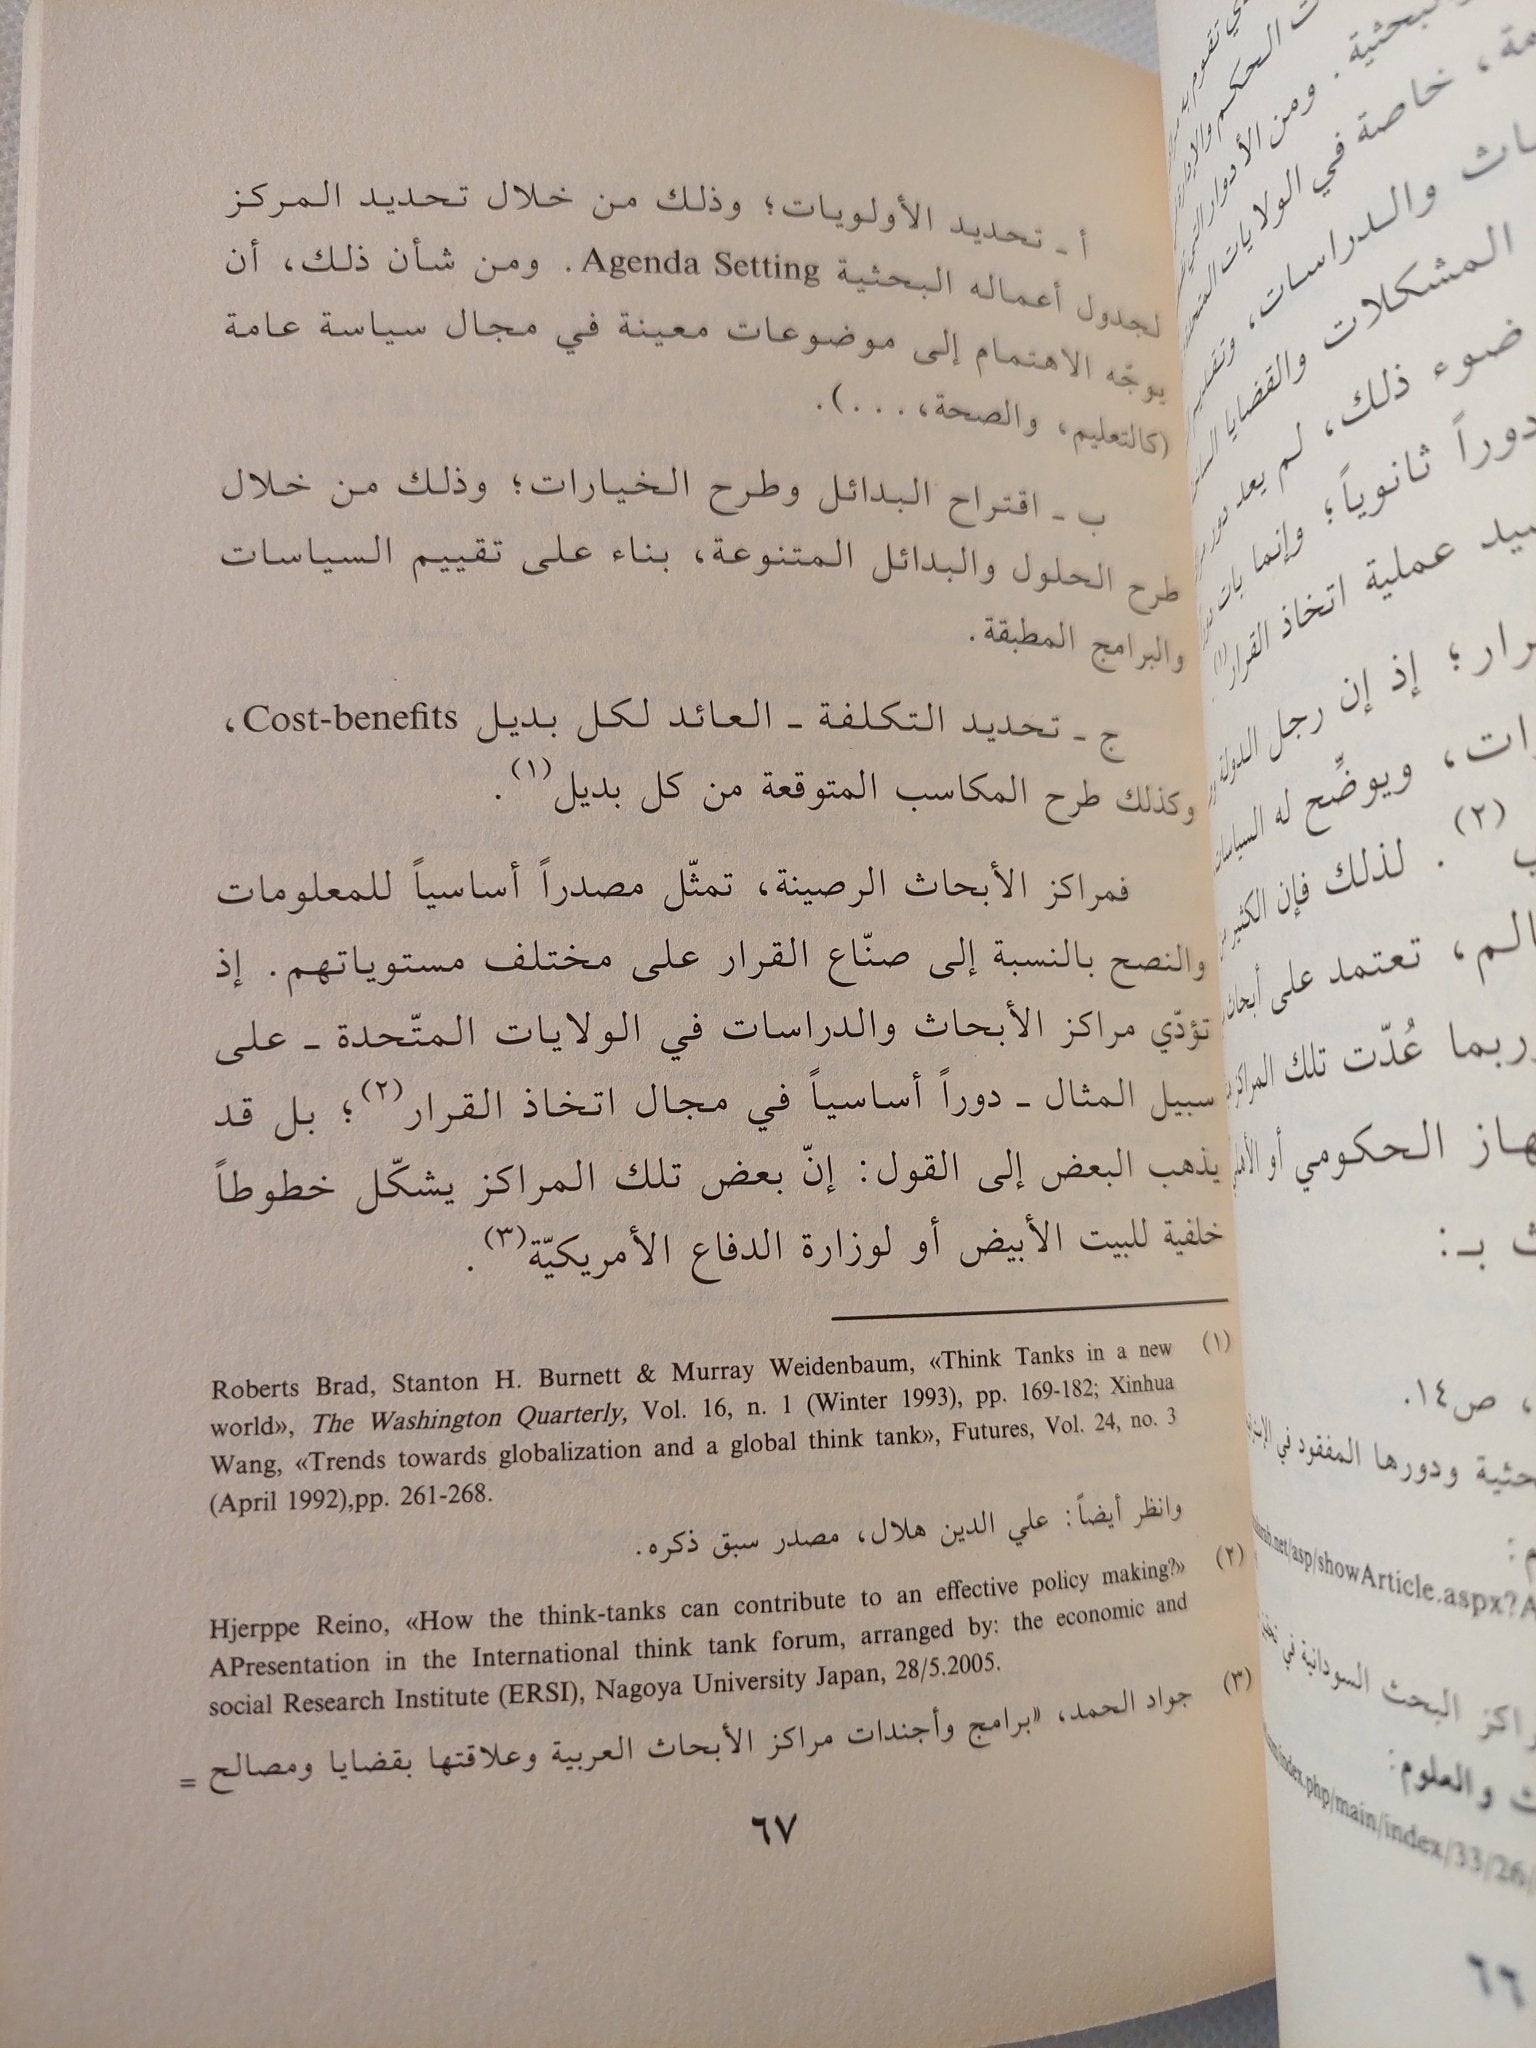 أ ـ تحديد الأولويات؛ وذلك من خلال تحديد المركز
لجدول أعماله البحثية Agenda Setting. ومن شأن ذلك، أن
يوجّه الاهتمام إلى موضوعات معينة في مجال سياسة عامة
(كالتعليم، والصحة، ...).
ب ـ اقتراح البدائل وطرح الخيارات؛ وذلك من خلال
طرح الحلول والبدائل المتنوعة، بناء على تقييم السياسات
والبرامج المطبقة.
ج ـ تحديد التكلفة ـ العائد لكل بديل Cost-benefits،
وكذلك طرح المكاسب المتوقعة من كل بديل(١).
فمراكز الأبحاث الرصينة، تمثّل مصدراً أساسياً للمعلومات
والنصح بالنسبة إلى صنّاع القرار على مختلف مستوياتهم. إذ
تؤدّي مراكز الأبحاث والدراسات في الولايات المتّحدة ـ على
سبيل المثال ـ دوراً أساسياً في مجال اتخاذ القرار(٢)؛ بل قد
يذهب البعض إلى القول: إنّ بعض تلك المراكز يشكّل خطوطاً
خلفية للبيت الأبيض أو لوزارة الدفاع الأمريكيّة(٣).
(١) Roberts Brad, Stanton H. Burnett & Murray Weidenbaum, «Think Tanks in a new
world», The Washington Quarterly, Vol. 16, n. 1 (Winter 1993), pp. 169-182; Xinhua
Wang, «Trends towards globalization and a global think tank», Futures, Vol. 24, no. 3
(April 1992),pp. 261-268.
وانظر أيضاً: علي الدين هلال، مصدر سبق ذكره.
(٢) Hjerppe Reino, «How the think-tanks can contribute to an effective policy making?»
APresentation in the International think tank forum, arranged by: the economic and
social Research Institute (ERSI), Nagoya University Japan, 28/5.2005.
(٣) جواد الحمد، «برامج وأجندات مراكز الأبحاث العربية وعلاقتها بقضايا ومصالح =
٦٧
البحثية. ومن الأدوار التي
خاصة في الولايات
والدراسات،
المشكلات والقضايا
ضوء ذلك، لم يعد دور
دوراً ثانوياً؛ وإنما بات
عملية اتخاذ القرار(١)
إذ إن رجل الدولة
ويوضّح له السياسات
(٢). لذلك فإن الكثير
تعتمد على أبحاث
وربما عُدّت تلك المراكز
الحكومي أو الأهلي
بـ:
، ص١٤.
ودورها المفقود في
net/asp/showArticle.aspx?A
مراكز البحث السودانية في
والعلوم:
index.php/main/index/33/26/
٦٦